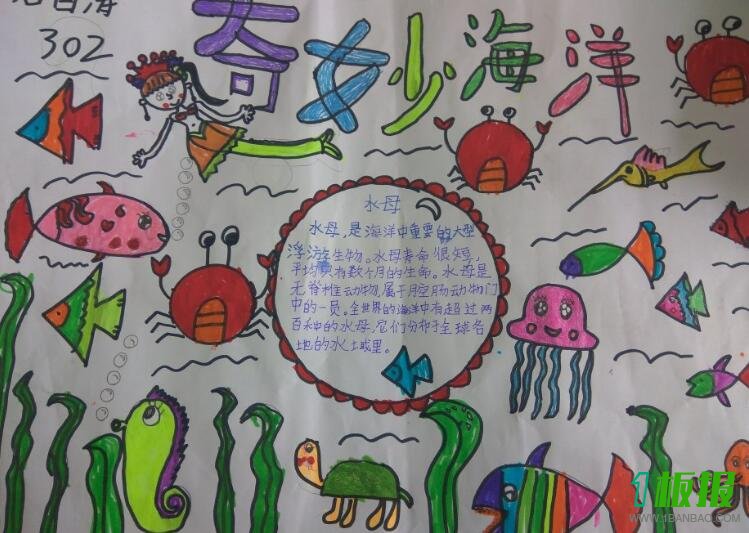 302
奇妙海洋
水母
水母，是海洋中重要的大型
浮游生物。水母寿命很短，
平均只有数个月的生命。水母是
无脊椎动物，属于腔肠动物门
中的一员。全世界的海洋中有超过两
百种的水母，它们分布于全球各
地的水土或里。
1板报
WWW.1BANBAO.COM